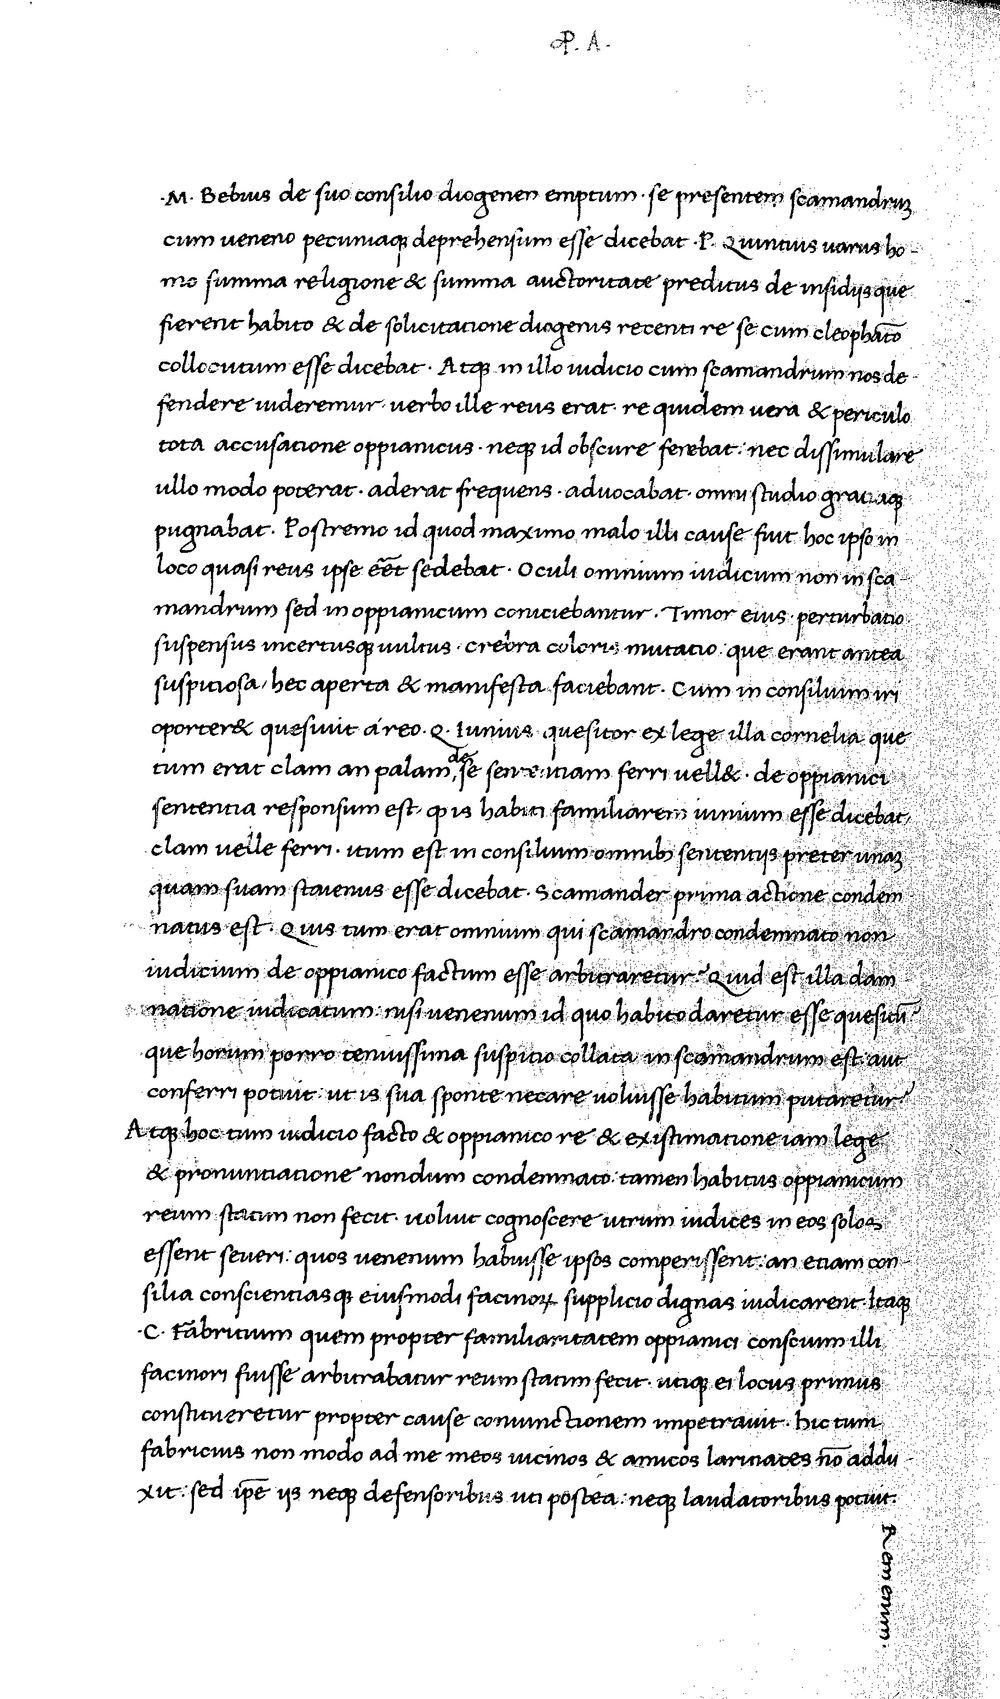 P. A.
.M. Bebius de suo consilio diogenen emptum · se presentem scamandruꝫ
cum ueneno pecuniaqꝫ deprehensum esse dicebat · P. Quintius uarus ho-
mo summa religione & summa auctoritate preditus de insidijs que
fierent habito & de solicitatione diogenis recenti re se cum cleophāto
collocutum esse dicebat · Atqꝫ in illo iudicio cum scamandrum nos de-
fendere uideremur · uerbo ille reus erat · re quidem uera & periculo
tota accusatione oppianicus · neqꝫ id obscure ferebat: nec dissimulare
ullo modo poterat · aderat frequens · aduocabat · omni studio gratiaqꝫ
pugnabat · Postremo id quod maximo malo illi cause fuit hoc ipso in
loco quasi reus ipse eēt sedebat · Oculi omnium iudicum non in sca-
mandrum sed in oppianicum coniciebantur · Timor eius · perturbatio
suspensus incertusqꝫ uultus · crebra coloris mutatio · que erant antea
suspitiosa / hec aperta & manifesta faciebant · Cum in consilium iri
oporter& quesiuit a reo · Q. Iunius quesitor ex lege illa cornelia que
tum erat clam an palam de se sententiam ferri uell& · de oppianici
sententia responsum est · ꝙ is habiti familiarem iunium esse dicebat,
clam uelle ferri · itum est in consilium omnibꝫ sententijs preter unaꝫ
quam suam staienus esse dicebat · Scamander prima actione condem
natus est · Quis tum erat omnium qui scamandro condemnato non
iudicium de oppianico factum esse arbitraretur? Quid est illa dam
natione iudicatum: nisi uenenum id quo habito daretur esse quesitū?
que horum porro tenuissima suspitio collata in scamandrum est aut
conferri potuit · ut is sua sponte necare uoluisse habitum putaretur?
Atqꝫ hoc tum iudicio facto & oppianico re & existimatione iam lege
& pronuntiatione nondum condemnato: tamen habitus oppianicum
reum statim non fecit · uoluit cognoscere utrum iudices in eos solos
essent seueri: quos uenenum habuisse ipsos comperissent: an etiam con-
silia conscientiasqꝫ eiusmodi facinoꝝ supplicio dignas iudicarent · Itaqꝫ
·C· Fabritium quem propter familiaritatem oppianici conscium illi
facinori fuisse arbitrabatur reum statim fecit · utiqꝫ ei locus primus
constitueretur propter cause coniunctionem impetrauit · hic tum
fabricius non modo ad me meos uicinos & amicos larinates nō addu-
xit: sed ip̄e ijs neqꝫ defensoribus uti postea: neqꝫ laudatoribus potuit:
Rem enim.